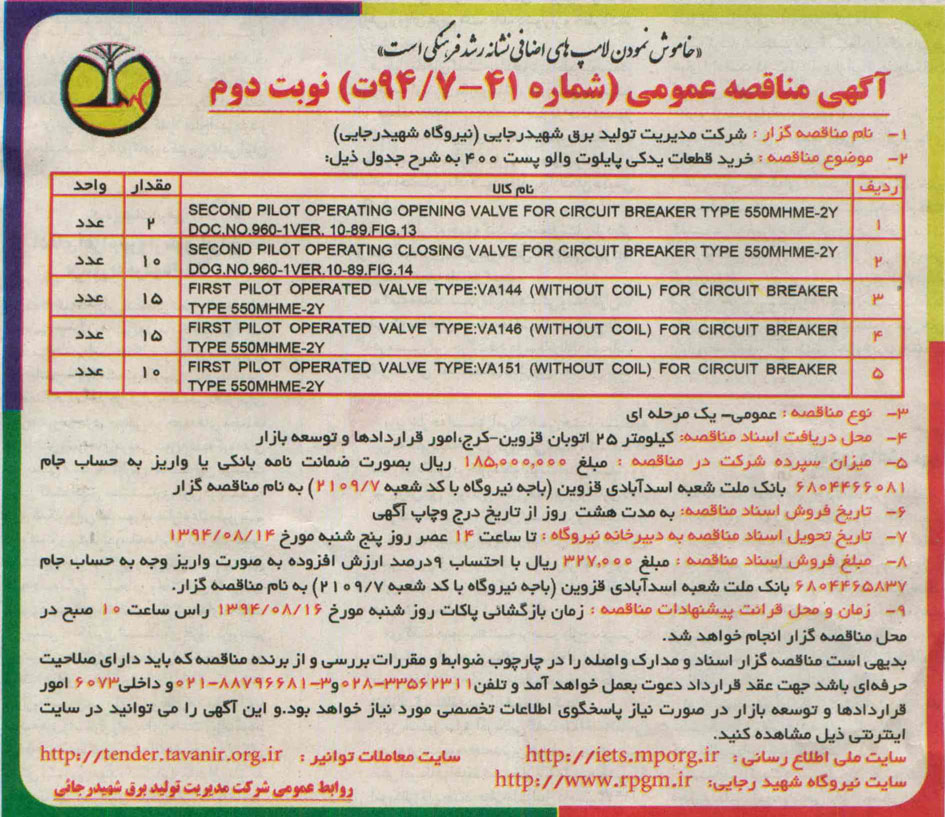 «خاموش نمودن لامپ های اضافی نشانه رشد فرهنگی است»
آگهی مناقصه عمومی (شماره ۴۱-۹۴/۷ت) نوبت دوم
۱- نام مناقصه گزار : شرکت مدیریت تولید برق شهیدرجایی (نیروگاه شهیدرجایی)
۲- موضوع مناقصه : خرید قطعات یدکی پایلوت والو پست ۴۰۰ به شرح جدول ذیل:
ردیف نام کالا مقدار واحد
۱ SECOND PILOT OPERATING OPENING VALVE FOR CIRCUIT BREAKER TYPE 550MHME-2Y ۲ عدد
DOC.NO.960-1VER. 10-89.FIG.13
۲ SECOND PILOT OPERATING CLOSING VALVE FOR CIRCUIT BREAKER TYPE 550MHME-2Y ۱۰ عدد
DOG.NO.960-1VER.10-89.FIG.14
۳ FIRST PILOT OPERATED VALVE TYPE:VA144 (WITHOUT COIL) FOR CIRCUIT BREAKER ۱۵ عدد
TYPE 550MHME-2Y
۴ FIRST PILOT OPERATED VALVE TYPE:VA146 (WITHOUT COIL) FOR CIRCUIT BREAKER ۱۵ عدد
TYPE 550MHME-2Y
۵ FIRST PILOT OPERATED VALVE TYPE:VA151 (WITHOUT COIL) FOR CIRCUIT BREAKER ۱۰ عدد
TYPE 550MHME-2Y
۳- نوع مناقصه : عمومی- یک مرحله ای
۴- محل دریافت اسناد مناقصه: کیلومتر ۲۵ اتوبان قزوین-کرج،امور قراردادها و توسعه بازار
۵- میزان سپرده شرکت در مناقصه : مبلغ ۱۸۵,۰۰۰,۰۰۰ ریال بصورت ضمانت نامه بانکی یا واریز به حساب جام
۶۸۰۴۴۶۶۰۸۱ بانک ملت شعبه اسدآبادی قزوین (باجه نیروگاه با کد شعبه ۲۱۰۹/۷) به نام مناقصه گزار
۶- تاریخ فروش اسناد مناقصه: به مدت هشت روز از تاریخ درج وچاپ آگهی
۷- تاریخ تحویل اسناد مناقصه به دبیرخانه نیروگاه : تا ساعت ۱۴ عصر روز پنج شنبه مورخ ۱۳۹۴/۰۸/۱۴
۸- مبلغ فروش اسناد مناقصه : مبلغ ۳۲۷,۰۰۰ ریال با احتساب ۹درصد ارزش افزوده به صورت واریز وجه به حساب جام
۶۸۰۴۴۶۵۸۳۷ بانک ملت شعبه اسدآبادی قزوین (باجه نیروگاه با کد شعبه ۲۱۰۹/۷) به نام مناقصه گزار.
۹- زمان و محل قرائت پیشنهادات مناقصه : زمان بازگشائی پاکات روز شنبه مورخ ۱۳۹۴/۰۸/۱۶ راس ساعت ۱۰ صبح در
محل مناقصه گزار انجام خواهد شد.
بدیهی است مناقصه گزار اسناد و مدارک واصله را در چارچوب ضوابط و مقررات بررسی و از برنده مناقصه که باید دارای صلاحیت
حرفه‌ای باشد جهت عقد قرارداد دعوت بعمل خواهد آمد و تلفن۳۳۵۶۲۳۱۱-۰۲۸و۳-۸۸۷۹۶۶۸۱-۰۲۱ و داخلی۶۰۷۳ امور
قراردادها و توسعه بازار در صورت نیاز پاسخگوی اطلاعات تخصصی مورد نیاز خواهد بود.و این آگهی را می توانید در سایت
اینترنتی ذیل مشاهده کنید.
سایت ملی اطلاع رسانی : http://iets.mporg.ir سایت معاملات توانیر : http://tender.tavanir.org.ir
سایت نیروگاه شهید رجایی: http://www.rpgm.ir روابط عمومی شرکت مدیریت تولید برق شهیدرجائی